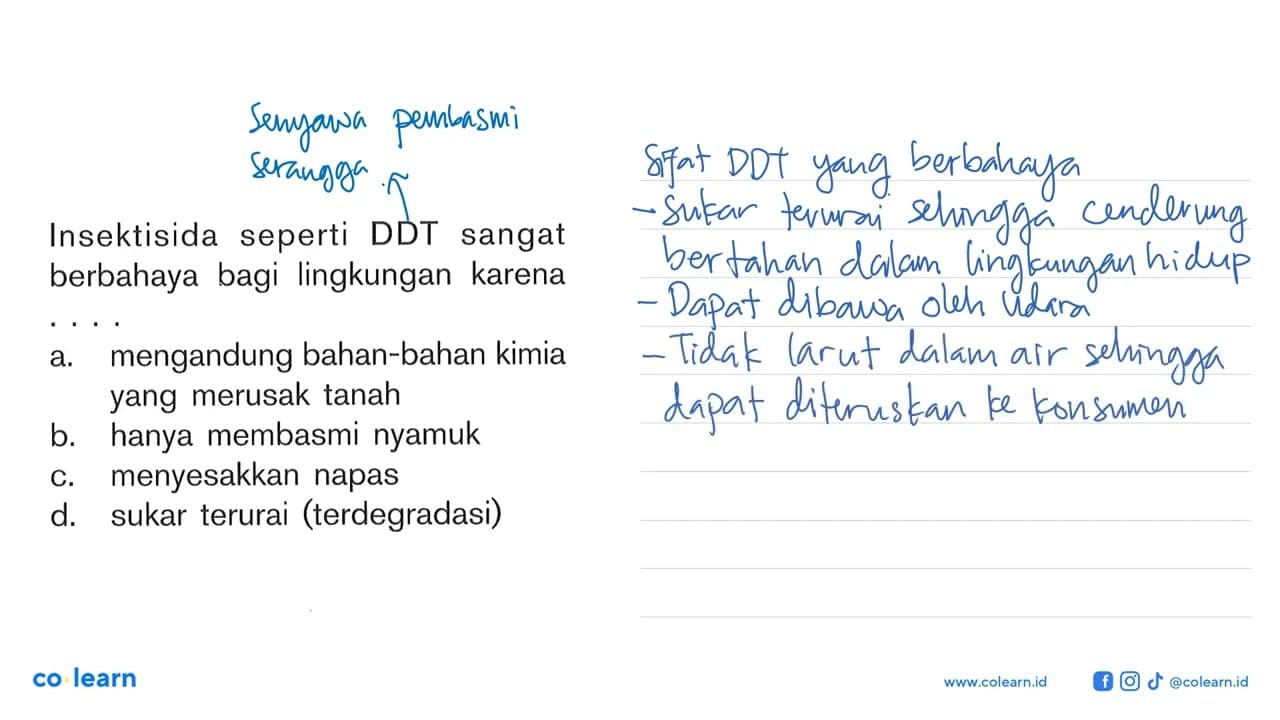 Senyawa pembasmi
serangga
Insektisida seperti DDT sangat
berbahaya bagi lingkungan karena
. . . .
a. mengandung bahan-bahan kimia
yang merusak tanah
b. hanya membasmi nyamuk
c. menyesakkan napas
d. sukar terurai (terdegradasi)
Sifat DDT yang berbahaya
- Sukar terurai sehingga cenderung
bertahan dalam lingkungan hidup
- Dapat dibawa oleh udara
- Tidak larut dalam air sehingga
dapat diteruskan ke konsumen
co learn
www.colearn.id
@colearn.id